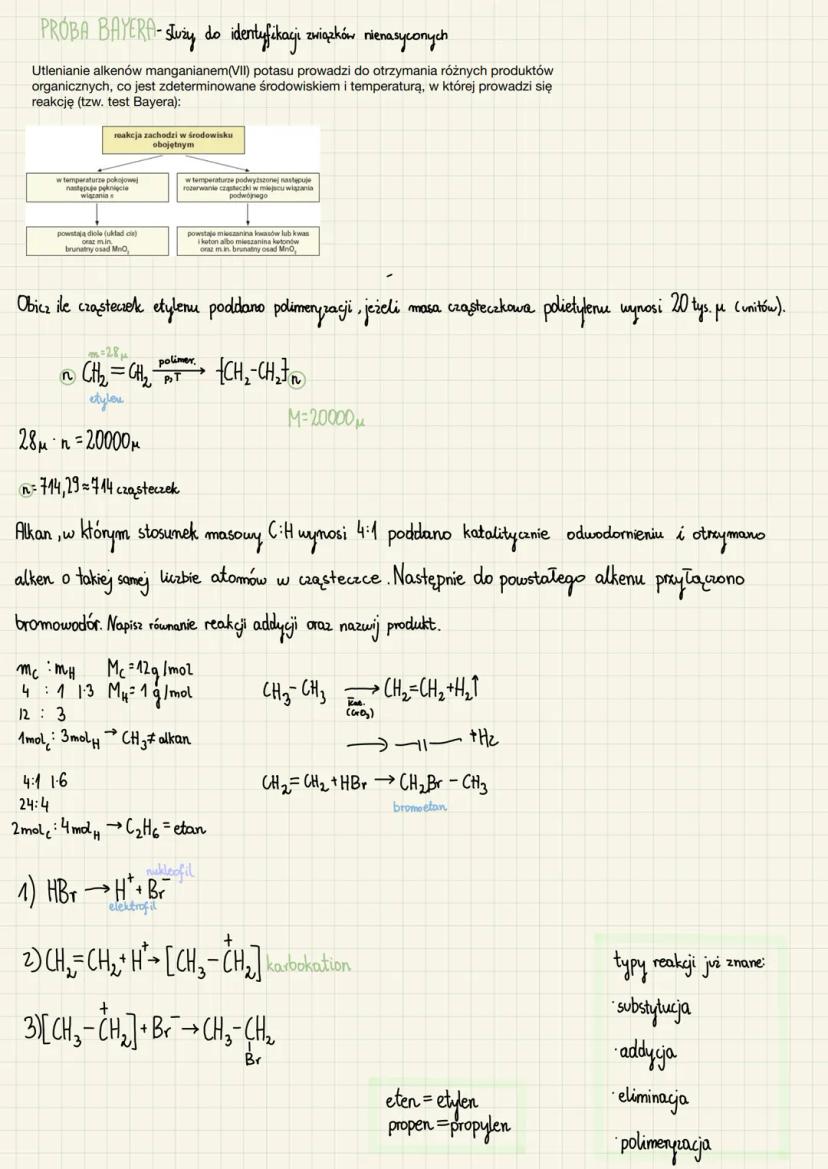 PRÓBA BAYERA - służy do identyfikacji związków nienasyconych
Utlenianie alkenów manganianem(VII) potasu prowadzi do otrzymania różnych produktów
organicznych, co jest zdeterminowane środowiskiem i temperaturą, w której prowadzi się
reakcję (tzw. test Bayera):
reakcja zachodzi w środowisku
obojętnym
w temperaturze pokojowej
następuje pęknięcie
wiązania π
w temperaturze podwyższonej następuje
rozerwanie cząsteczki w miejscu wiązania
podwójnego
powstają diole (układ cis)
oraz m.in.
brunatny osad MnO₂
powstaje mieszanina kwasów lub kwas
i keton albo mieszanina ketonów
oraz m.in. brunatny osad MnO₂
Obicz ile cząsteczek etylenu poddano polimeryzacji, jeżeli masa cząsteczkowa polietylenu wynosi 20 tys. μ (unitów).
m=28μ
n CH₂=CH₂ polimer. p,T → -[CH₂-CH₂]-n
etylen
M=20000μ
28μ · n = 20000μ
n = 714,29 ≈ 714 cząsteczek
Alkan, w którym stosunek masowy C:H wynosi 4:1 poddano katalitycznie odwodornieniu i otrzymano
alken o takiej samej liczbie atomów w cząsteczce. Następnie do powstałego alkenu przyłączono
bromowodór. Napisz równanie reakcji addycji oraz nazwij produkt.
mC : mH MC=12g/mol
4 : 1 |·3 MH=1 g/mol
12 : 3
1molC : 3molH → CH₃ ≠ alkan
4:1 |·6
24:4
2molC : 4molH → C₂H₆ = etan
CH₃-CH₃ → CH₂=CH₂+H₂↑
kat.
(CrO₃)
→ -||- +H₂
CH₂=CH₂+HBr → CH₂Br-CH₃
bromoetan
1) HBr → H⁺ + Br⁻
nukleofil
elektrofil
2) CH₂=CH₂+H⁺ → [CH₃-C⁺H₂] karbokation
3) [CH₃-C⁺H₂] + Br⁻ → CH₃-CH₂
Br
eten = etylen
propen = propylen
typy reakcji już znane:
· substytucja
· addycja
· eliminacja
· polimeryzacja